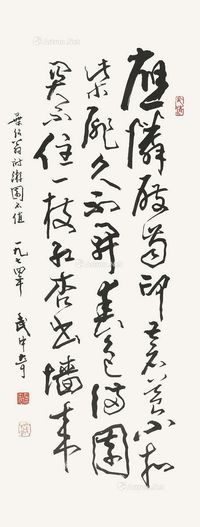 應憐屐齒印蒼苔小扣
柴扉久不開春色滿園
關不住一枝紅杏出墻來
葉紹翁詩遊園不值 一九七四年 武中奇